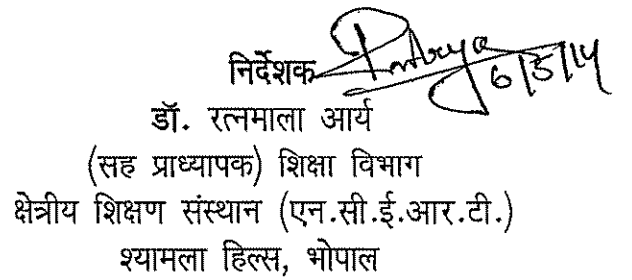 निर्देशक 6/5/14
डॉ. रत्नमाला आर्य
(सह प्राध्यापक) शिक्षा विभाग
क्षेत्रीय शिक्षण संस्थान (एन.सी.ई.आर.टी.)
श्यामला हिल्स, भोपाल